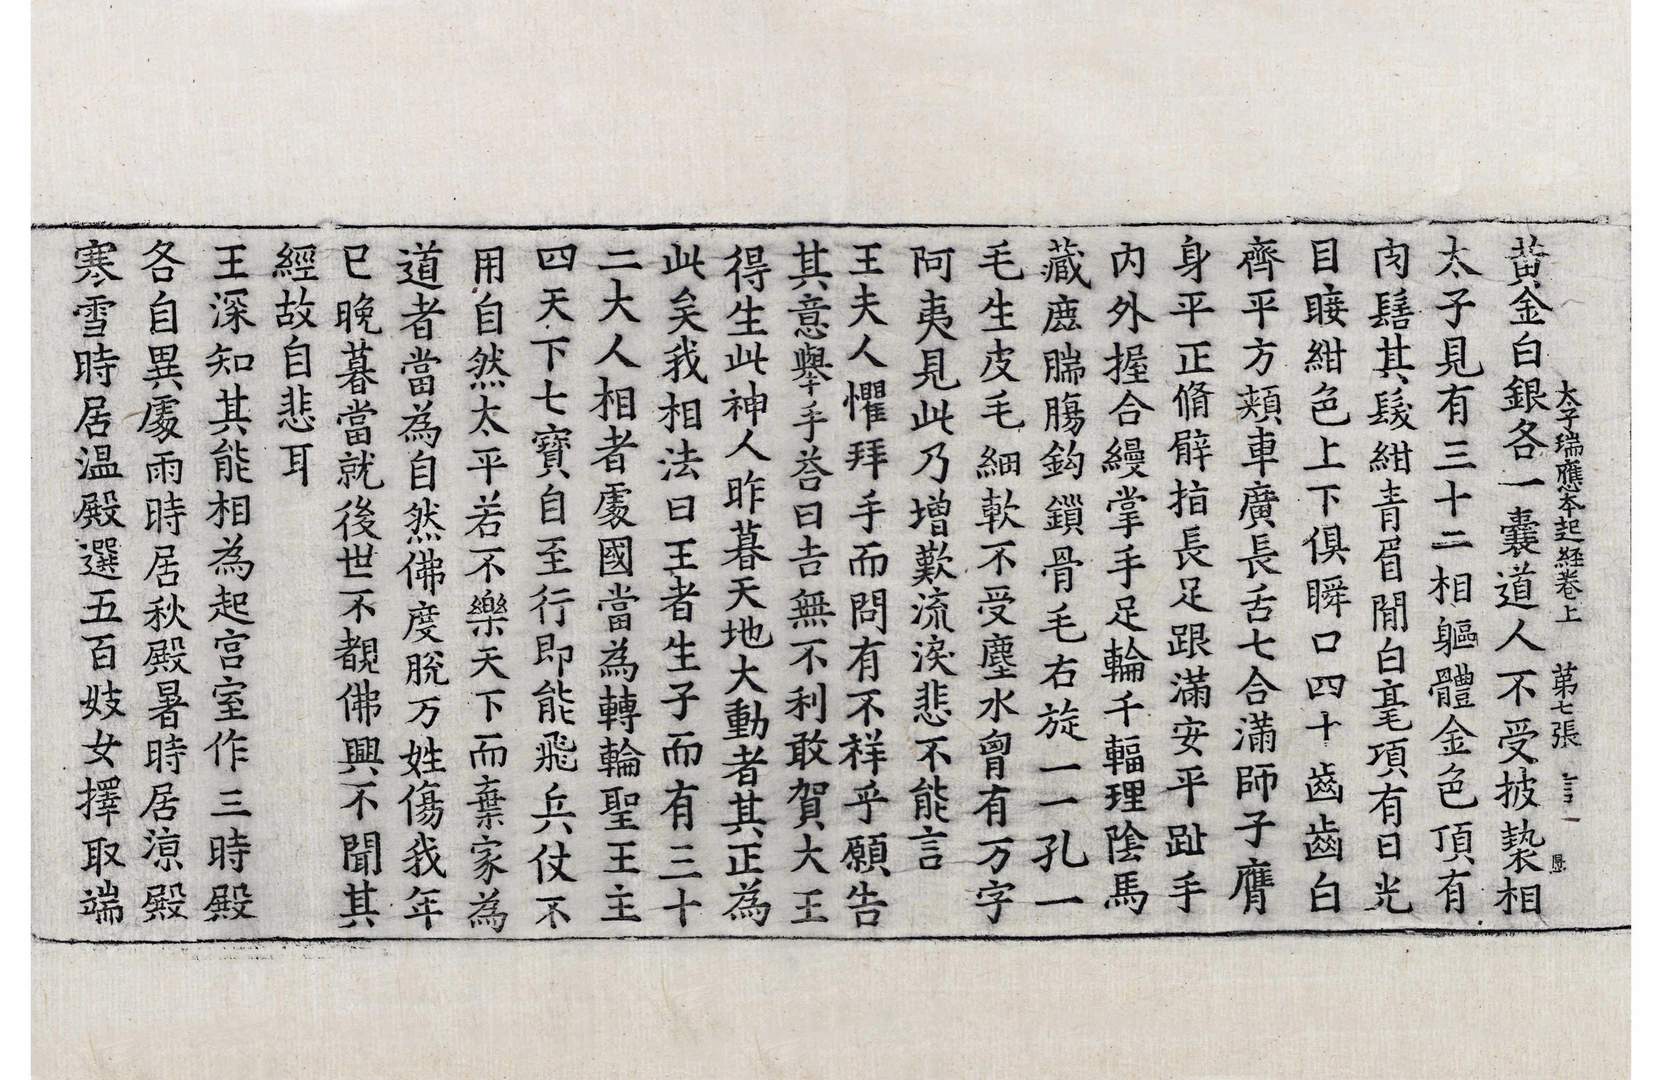 太子瑞應本起経卷上　第七張　言一
黃金白銀各一囊道人不受披褺相
太子見有三十二相軀體金色頂有
肉髻其髮紺青眉閒白毫項有日光
目睫紺色上下俱瞬口四十齒齒白
齊平方頰車廣長舌七合滿師子膺
身平正脩臂指長足跟滿安平趾手
內外握合縵掌手足輪千輻理陰馬
藏鹿腨膓鈎鎖骨毛右旋一一孔一
毛生皮毛細軟不受塵水胷有万字
阿夷見此乃增歎流淚悲不能言
王夫人懼拜手而問有不祥乎願告
其意舉手荅曰吉無不利敢賀大王
得生此神人昨暮天地大動者其正為
此矣我相法曰王者生子而有三十
二大人相者處國當為轉輪聖王主
四天下七寶自至行即能飛兵仗不
用自然太平若不樂天下而棄家為
道者當為自然佛度脫万姓傷我年
已晚暮當就後世不覩佛興不聞其
經故自悲耳
王深知其能相為起宮室作三時殿
各自異處雨時居秋殿暑時居涼殿
寒雪時居温殿選五百妓女擇取端